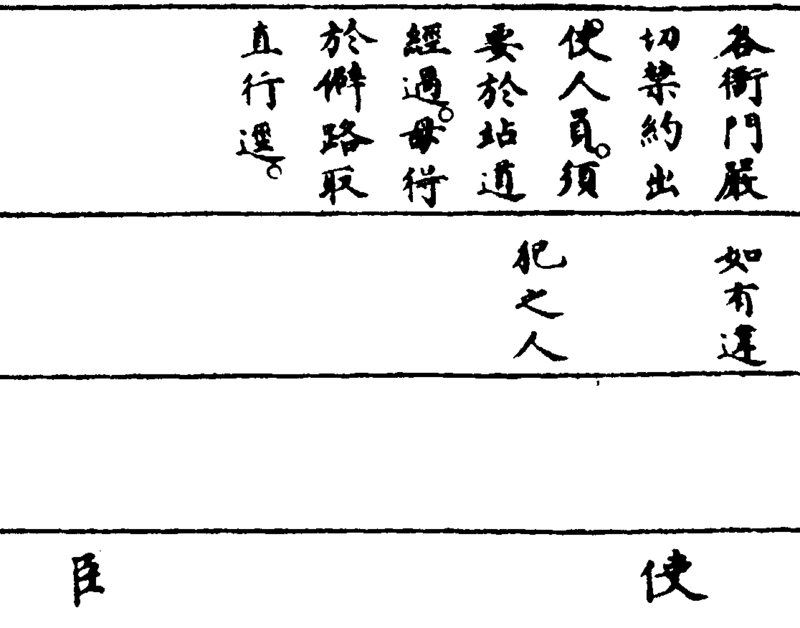 各衙門嚴
切禁約出
使人員須
要於站道
經過毋得
於僻路取
直行遶
如有違
犯之人
使
臣